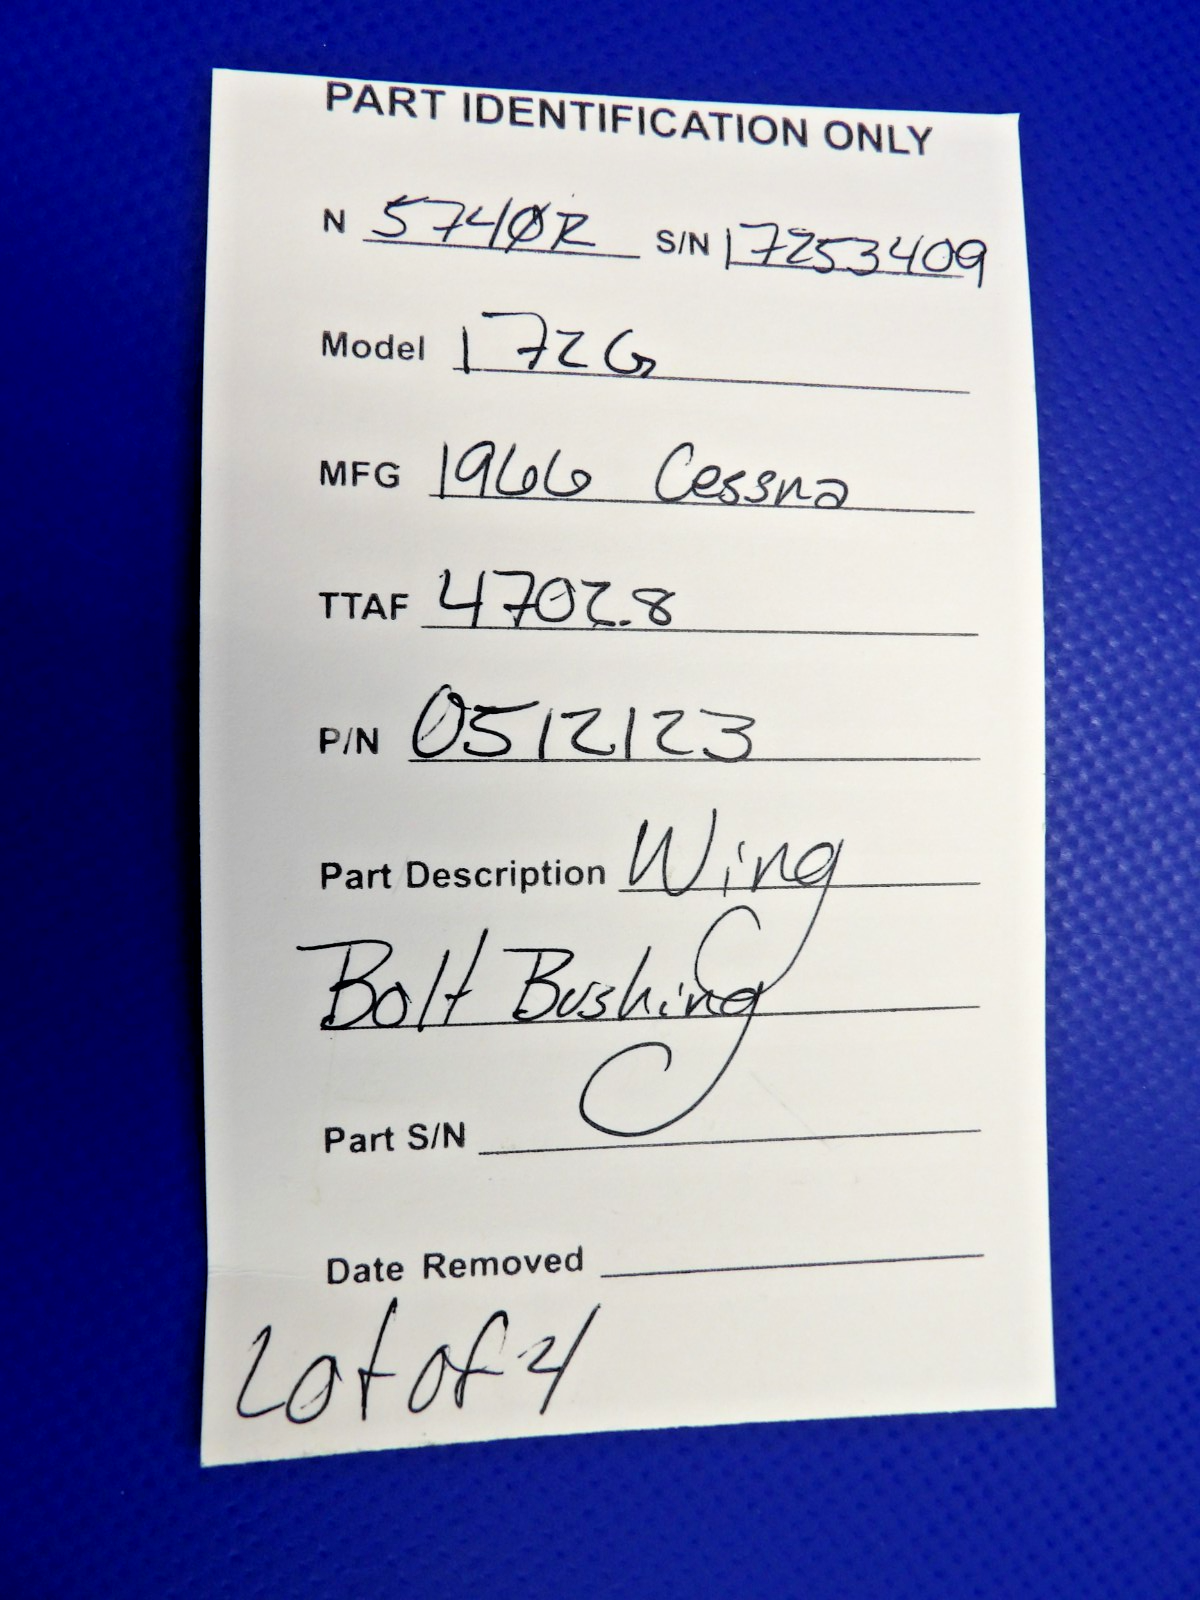 PART IDENTIFICATION ONLY
N 5740R S/N 17253409
Model 172G
MFG 1966 Cessna
TTAF 4702.8
P/N 0512123
Part Description Wing
Bolt Bushing
Part S/N
Date Removed
Lot of 4